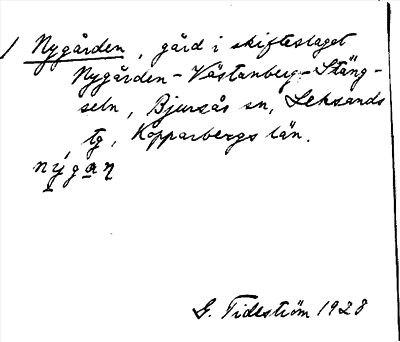 1 Nygården, gård i skifteslaget
Nygården - Västanberg - Stäng-
seln, Bjursås sn, Leksands
tg, Kopparbergs län.
G. Tideström 1928